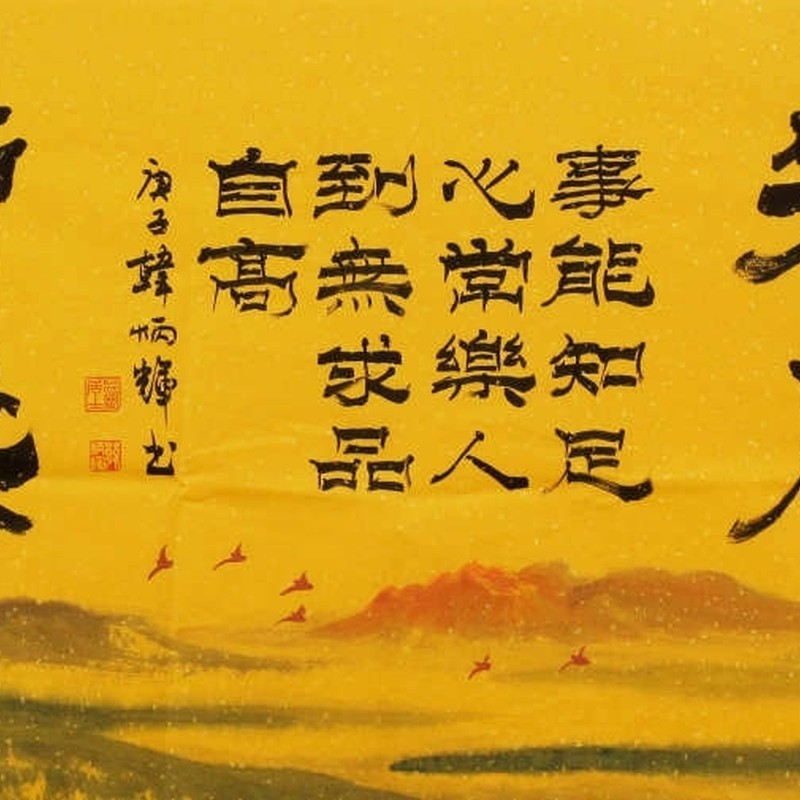 事能知足
心常樂人
到無求品
自高
庚子韓炳輝书